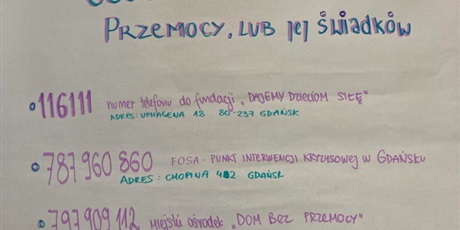 PRZEMOCY, LUB jej świadków
116111 numer telefonu do fundacji „DAJEMY DZIECIOM SIŁĘ"
ADRES: UPHAGENA 18 80-237 GDAŃSK
787 960 860 FOSA - PUNKT INTERWENCJI KRYZYSOWEJ W GDAŃSKU
ADRES: CHOPINA 42 GDAŃSK
797 909 112 Miejski ośrodek „DOM BEZ PRZEMOCY"